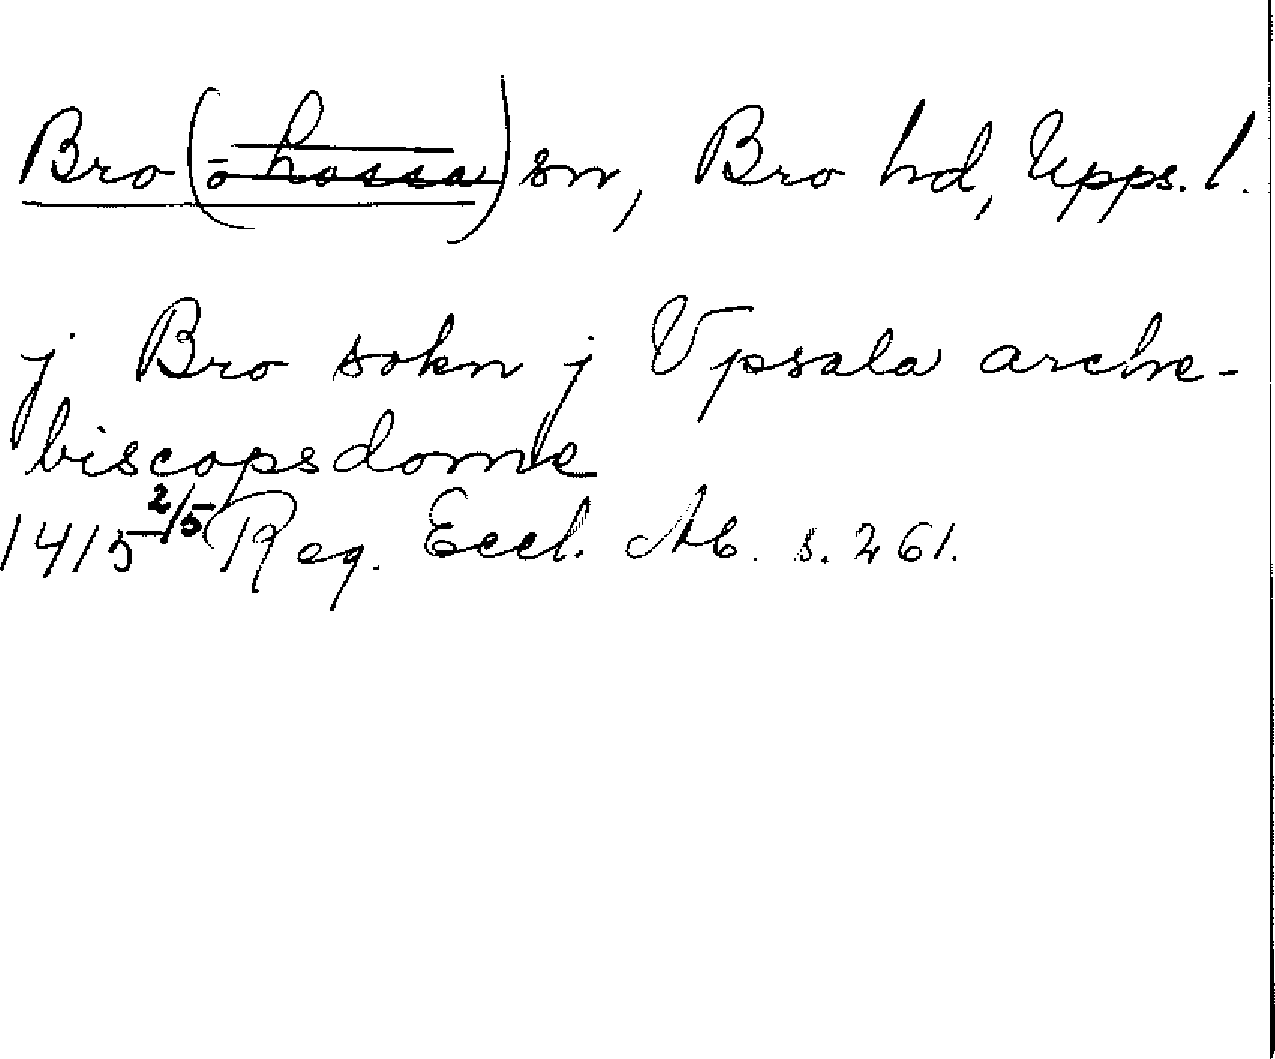 Bro (o Lossa) sn, Bro hd, Upps. l.
j Bro sokn j Vpsala arche-
biscopsdome
1415 2/5 Reg. Eccl. Ab. s. 261.